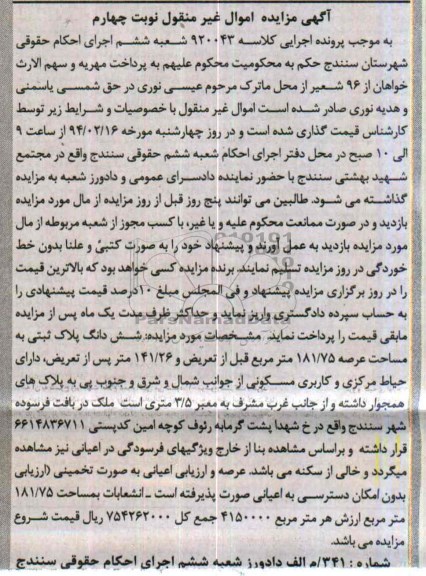 آگهی مزایده اموال غیر منقول نوبت چهارم
به موجب پرونده اجرایی کلاسه ۹۲۰۰۴۳ شعبه ششم اجرای احکام حقوقی
شهرستان سنندج حکم به محکومیت محکوم علیهم به پرداخت مهریه و سهم الارث
خواهان از ۹۶ شعیر از محل ماترک مرحوم عیسی نوری در حق شمسی یاسمنی
و هدیه نوری صادر شده است اموال غیر منقول با خصوصیات و شرایط زیر توسط
کارشناس قیمت گذاری شده است و در روز چهارشنبه مورخه ۹۴/۰۲/۱۶ از ساعت ۹
الی ۱۰ صبح در محل دفتر اجرای احکام شعبه ششم حقوقی سنندج واقع در مجتمع
شهید بهشتی سنندج با حضور نماینده دادسرای عمومی و دادورز شعبه به مزایده
گذاشته می شود. طالبین می توانند پنج روز قبل از روز مزایده از مال مورد مزایده
بازدید و در صورت ممانعت محکوم علیه و یا غیر، با کسب مجوز از شعبه مربوطه از مال
مورد مزایده بازدید به عمل آورند و پیشنهاد خود را به صورت کتبی و علنا بدون خط
خوردگی در روز مزایده تسلیم نمایند. برنده مزایده کسی خواهد بود که بالاترین قیمت
را در روز برگزاری مزایده پیشنهاد و فی المجلس مبلغ ۱۰درصد قیمت پیشنهادی را
به حساب سپرده دادگستری واریز نماید و حداکثر ظرف مدت یک ماه پس از مزایده
مابقی قیمت را پرداخت نماید. مشخصات مورد مزایده: شش دانگ پلاک ثبتی به
مساحت عرصه ۱۸۱/۷۵ متر مربع قبل از تعریض و ۱۴۱/۲۶ متر پس از تعریض، دارای
حیاط مرکزی و کاربری مسکونی از جوانب شمال و شرق و جنوب پی به پلاک های
همجوار داشته و از جانب غرب مشرف به معبر ۳/۵ متری است ملک در بافت فرسوده
شهر سنندج واقع در خ شهدا پشت گرمابه رئوف کوچه امین کدپستی ۶۶۱۴۸۳۶۷۱۱
قرار داشته و براساس مشاهده بنا از خارج ویژگیهای فرسودگی در اعیانی نیز مشاهده
میگردد و خالی از سکنه می باشد. عرصه و ارزیابی اعیانی به صورت تخمینی (ارزیابی
بدون امکان دسترسی به اعیانی صورت پذیرفته است ـ انشعابات بمساحت ۱۸۱/۷۵
متر مربع ارزش هر متر مربع ۴۱۵۰۰۰۰ جمع کل ۷۵۴۲۶۲۰۰۰ ریال قیمت شروع
مزایده می باشد.
شماره : ۳۴۱/م الف دادورز شعبه ششم اجرای احکام حقوقی سنندج